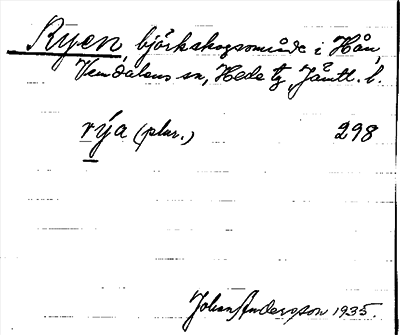 Ryen, björkskogsområde i Hån,
Vemdalens sn, Hede tg, Jämtl. l.
rýa (plur.) 298
Johan Andersson 1935.